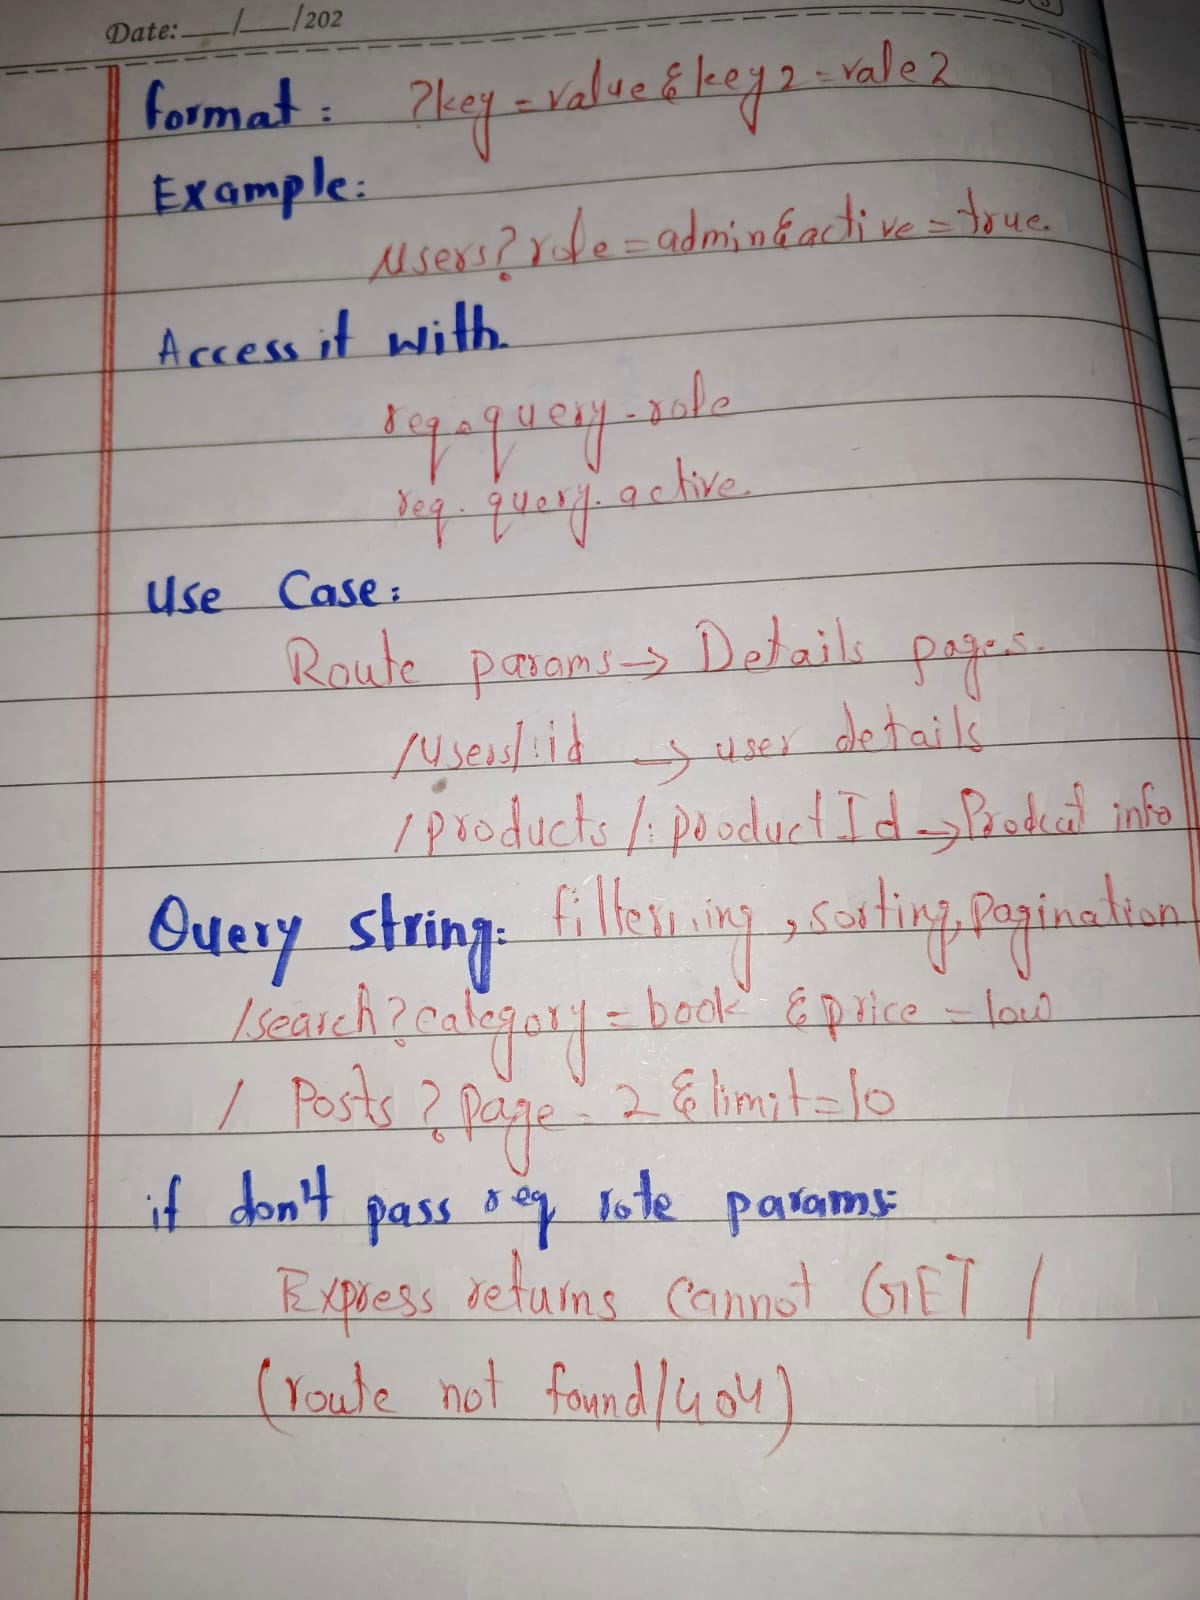 Date: __/__/202
format : ?key=value&key2=vale2
Example:
Users?role=admin&active=true.
Access it with.
req.query.role
req.query.active.
Use Case:
Route params → Details pages.
/users/:id → user details
/products/:productId → Prodcut info
Query string: filtering, sorting, Pagination
/search?category=book &price=low
/ Posts ? Page=2 &limit=10
if don't pass req rote params:
Express returns Cannot GET /
(route not found/404)